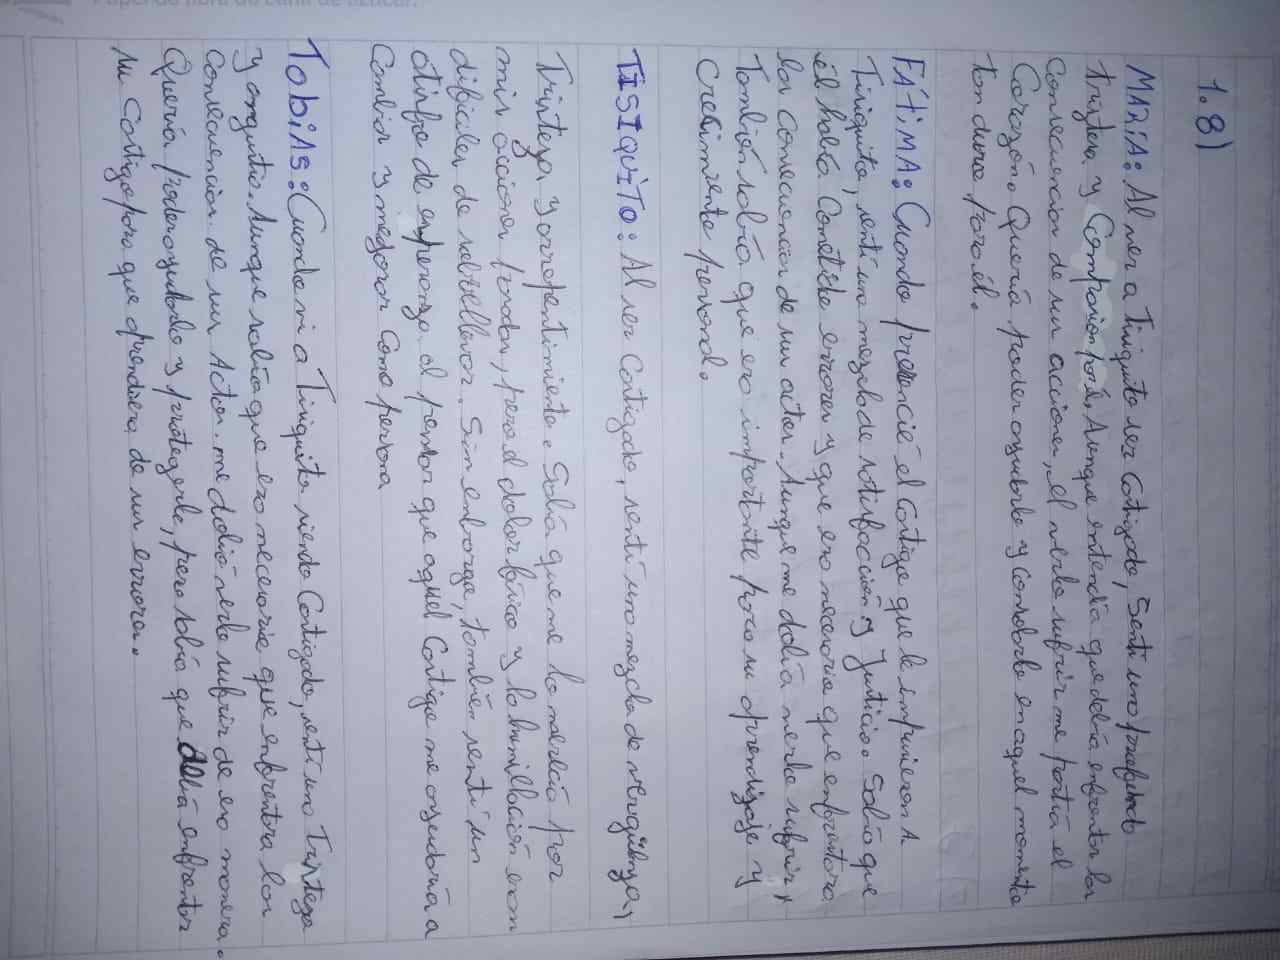 Papel de fibra de caña de azúcar.
1.8)
MARÍA: Al ver a Tisiquito ser Castigado, Sentí una profunda
tristeza y Compasión por él. Aunque entendía que debía enfrentar las
consecuencias de sus acciones, el verlo sufrir me partía el
Corazón. Quería poder ayudarlo y consolarlo en aquel momento
tan duro para él.
FÁTIMA: Cuando presencié el Castigo que le impusieron A
Tisiquito, sentí una mezcla de satisfacción y Justicia. Sabía que
él había Cometido errores y que era necesario que enfrentara
las consecuencias de sus actos. Aunque me dolía verlo sufrir,
También sabía que era importante para su aprendizaje y
Crecimiento personal.
TISIQUITO: Al ser Castigado, sentí una mezcla de vergüenza,
Tristeza y arrepentimiento. Sabía que me lo merecía por
mis acciones pasadas, pero el dolor físico y la humillación eran
difíciles de sobrellevar. Sin embargo, también sentí un
atisbo de esperanza al pensar que aquel Castigo me ayudaría a
Cambiar y mejorar Como persona
TOBÍAS: Cuando vi a Tisiquito siendo Castigado, sentí una Tristeza
y angustia. Aunque sabía que era necesario que enfrentara las
consecuencias de sus Actos, me dolía verlo sufrir de esa manera.
Quería poder ayudarlo y protegerlo, pero sabía que debía enfrentar
su Castigo para que aprendiera de sus errores.